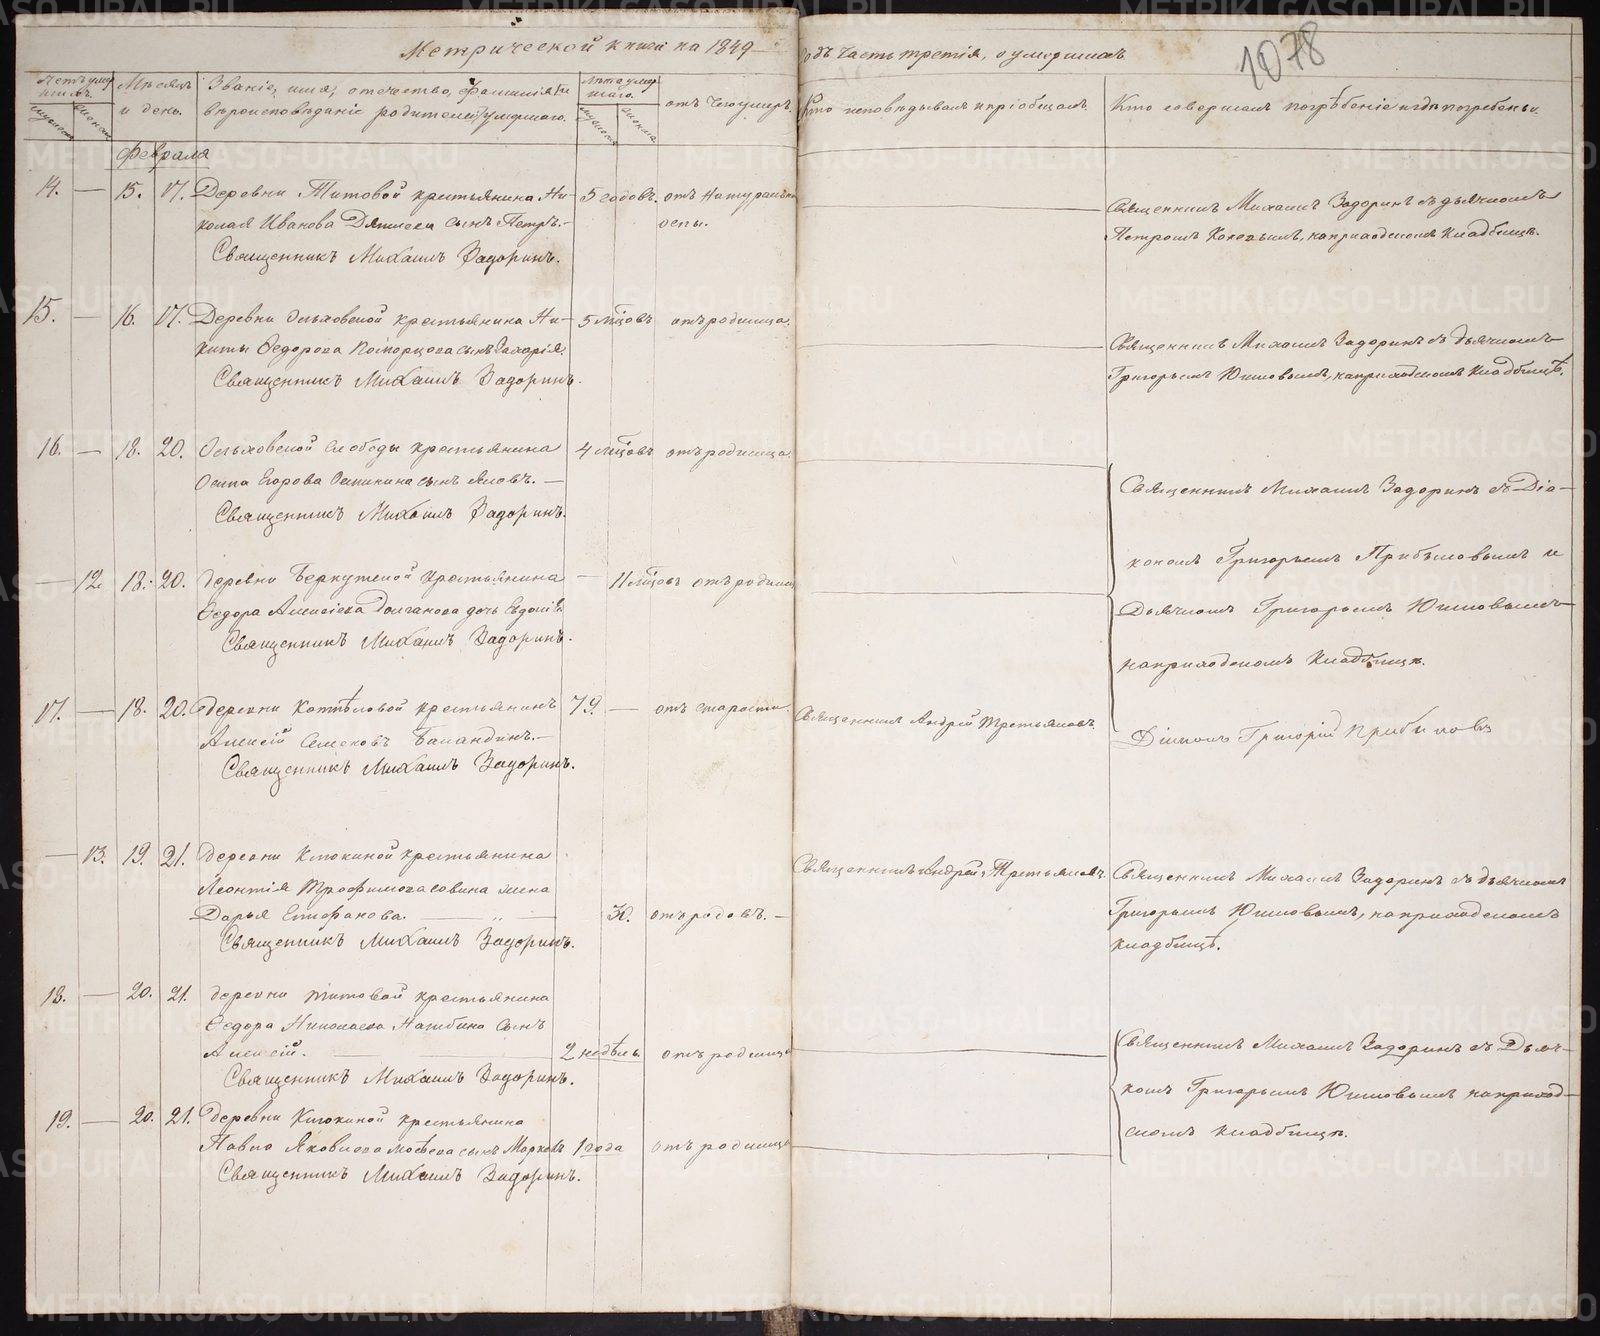 Метрической книги на 1849 годъ часть третія, о умершихъ
1078
Мѣсяцъ и день.
Званіе, имя, отечество, фамилія и вѣроисповѣданіе родителей умершаго.
Лѣта умершаго.
отъ чего умеръ.
Кто исповѣдывалъ и пріобщалъ.
Кто совершалъ погребеніе и гдѣ погребены.
Февраля
14. — 15. 17. Деревни Титовой крестьянина Ни- 5 годовъ. отъ натуральн
колая Иванова сынъ Петръ.— оспы.
Священникъ Михаилъ Задоринъ.
Священникъ Михаилъ Задоринъ съ дьячкомъ
Петромъ на приходскомъ кладбищѣ.
15. — 16. 17. Деревни Ольховской крестьянина Ни- 5 мѣсцовъ отъ родимца.
киты Ѳедорова сынъ Захарія.
Священникъ Михаилъ Задоринъ.
Священникъ Михаилъ Задоринъ съ дьячкомъ
Григорьемъ Юшковымъ, на приходскомъ кладбищѣ.
16. — 18. 20. Ольховской слободы крестьянина 4 мѣсцовъ отъ родимца
Осипа Егорова сынъ Яковъ. —
Священникъ Михаилъ Задоринъ.
Священникъ Михаилъ Задоринъ съ Діа-
кономъ Григорьемъ Прибыловымъ и
Дьячкомъ Григорьемъ Юшковымъ
на приходскомъ кладбищѣ.
— 12 18. 20. деревни Беркутской крестьянина — 11 мѣсцовъ отъ родимц
Ѳедора Алексѣева Долганова дочь Евдокія.
Священникъ Михаилъ Задоринъ.
17. — 18. 20. деревни Котѣловой крестьянинъ 79. — отъ старости.
Алексій Семеновъ Баландинъ.—
Священникъ Михаилъ Задоринъ.
Священникъ Андрей Третьяковъ
Діаконъ Григорій Прибыловъ
— 13. 19. 21. деревни Клюкиной крестьянина
Леонтія Трофимова жена
Дарья Епифанова. — „ — 30. отъ родовъ. —
Священникъ Михаилъ Задоринъ.
Священникъ Андрей Третьяковъ.
Священникъ Михаилъ Задоринъ съ дьячкомъ
Григорьемъ Юшковымъ, на приходскомъ
кладбищѣ.
18. — 20. 21. деревни Титовой крестьянина
Ѳедора Николаева сынъ
Алексѣй. — 2 недѣль. отъ родимца
Священникъ Михаилъ Задоринъ.
Священникъ Михаилъ Задоринъ съ Дьяч-
комъ Григорьемъ Юшковымъ на приход-
скомъ кладбищѣ.
19. — 20. 21. деревни Клюкиной крестьянина
Павла Яковлева сынъ 1 года отъ родимца
Священникъ Михаилъ Задоринъ.
METRIKI.GASO-URAL.RU